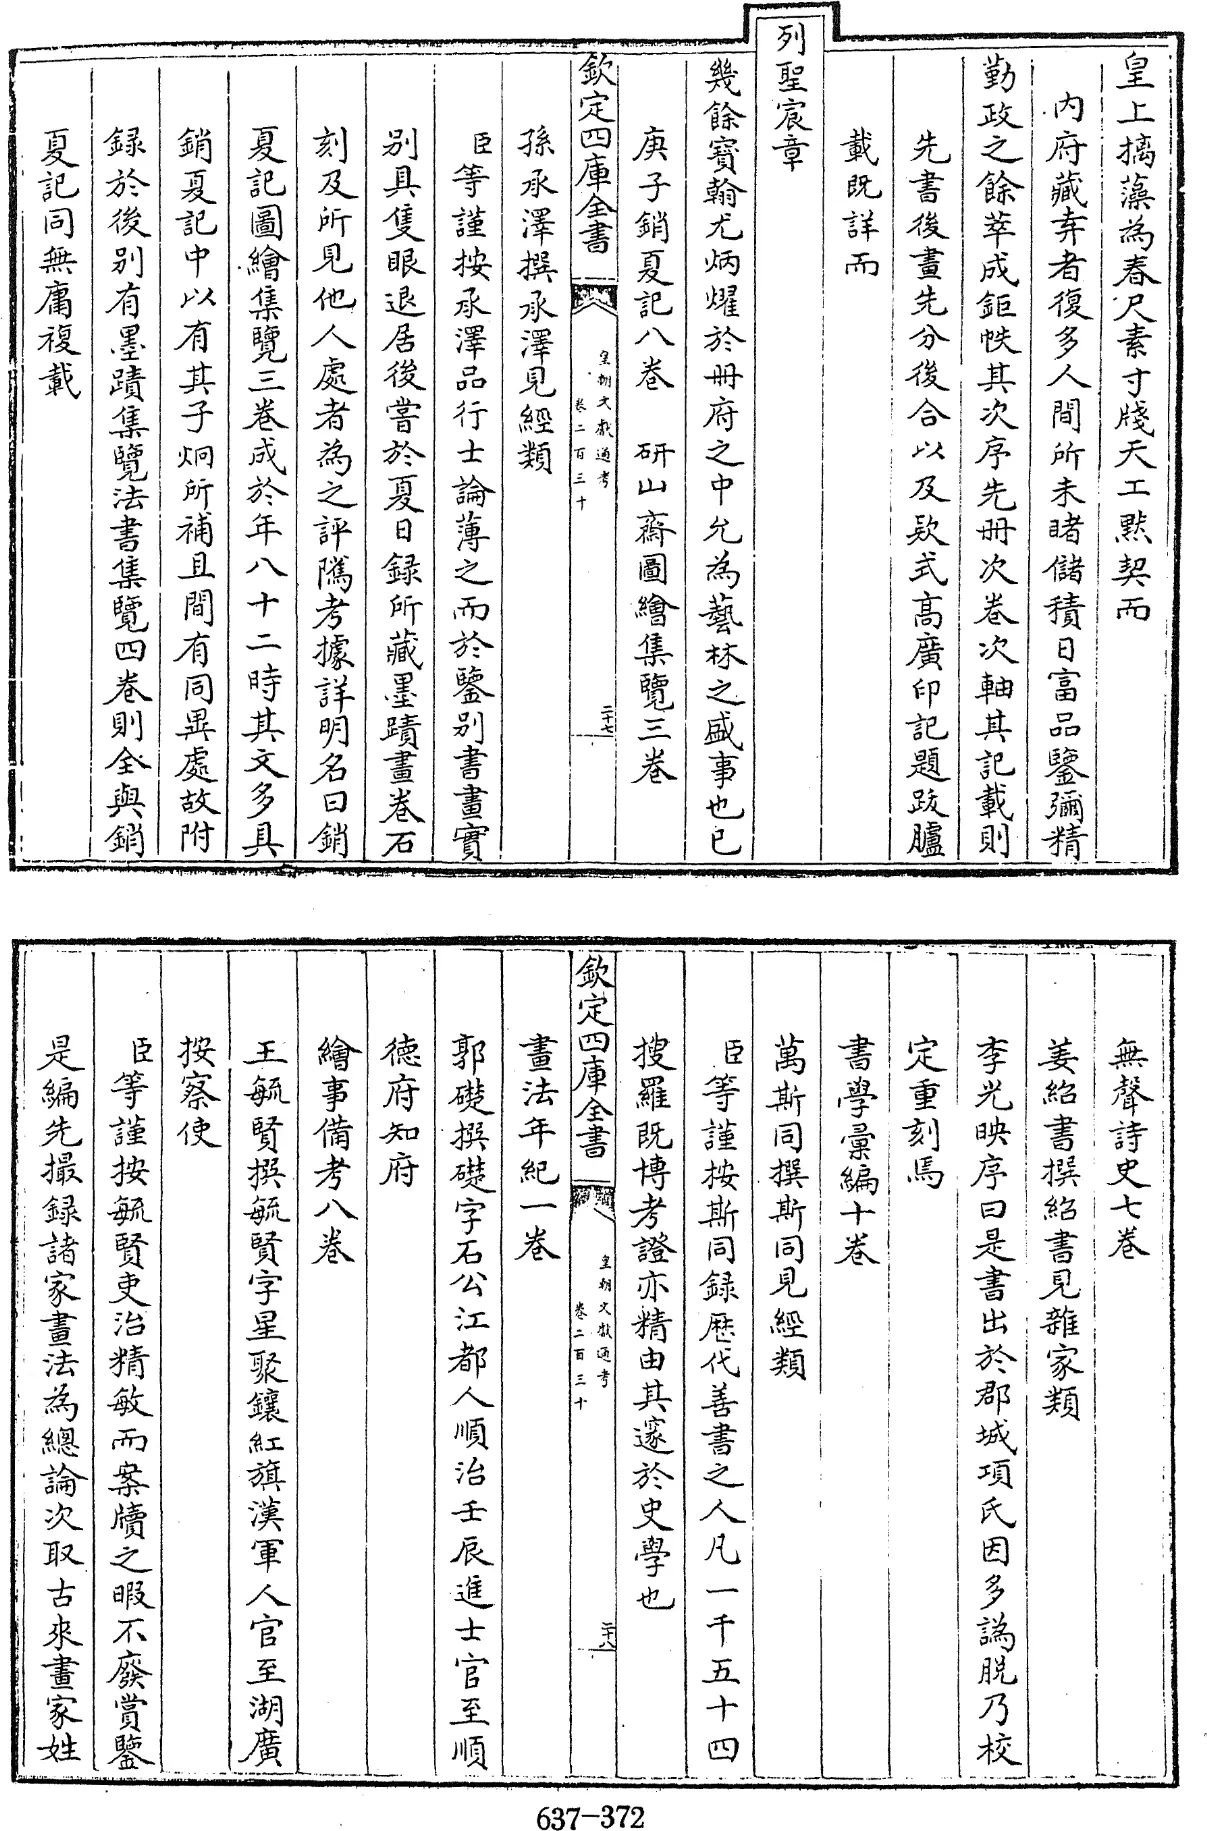 皇上摛藻為春尺素寸牋天工黙契而
内府藏弆者復多人間所未睹儲積日富品鑒彌精
勤政之餘萃成鉅帙其次序先冊次卷次軸其記載則
先書後畫先分後合以及欵式髙廣印記題跋臚
載既詳而
列聖宸章
幾餘寶翰尤炳燿於冊府之中允為藝林之盛事也已
庚子銷夏記八卷 研山齋圖繪集覽三卷
欽定四庫全書
皇朝文獻通考
卷二百三十
二十七
孫承澤撰承澤見經類
臣等謹按承澤品行士論薄之而於鑒别書畫實
别具隻眼退居後嘗於夏日録所藏墨蹟畫卷石
刻及所見他人處者為之評隲考據詳明名曰銷
夏記圖繪集覽三卷成於年八十二時其文多具
銷夏記中以有其子炯所補且間有同異處故附
録於後别有墨蹟集覽法書集覽四卷則全與銷
夏記同無庸複載
無聲詩史七卷
姜紹書撰紹書見雜家類
李光暎序曰是書出於郡城項氏因多譌脱乃校
定重刻焉
書學彚編十卷
萬斯同撰斯同見經類
臣等謹按斯同録歷代善書之人凡一千五十四
搜羅既博考證亦精由其邃於史學也
欽定四庫全書
皇朝文獻通考
卷二百三十
二十八
畫法年紀一卷
郭礎撰礎字石公江都人順治壬辰進士官至順
德府知府
繪事備考八卷
王毓賢撰毓賢字星聚鑲紅旗漢軍人官至湖廣
按察使
臣等謹按毓賢吏治精敏而案牘之暇不廢賞鑒
是編先撮録諸家畫法為總論次取古來畫家姓
637-372